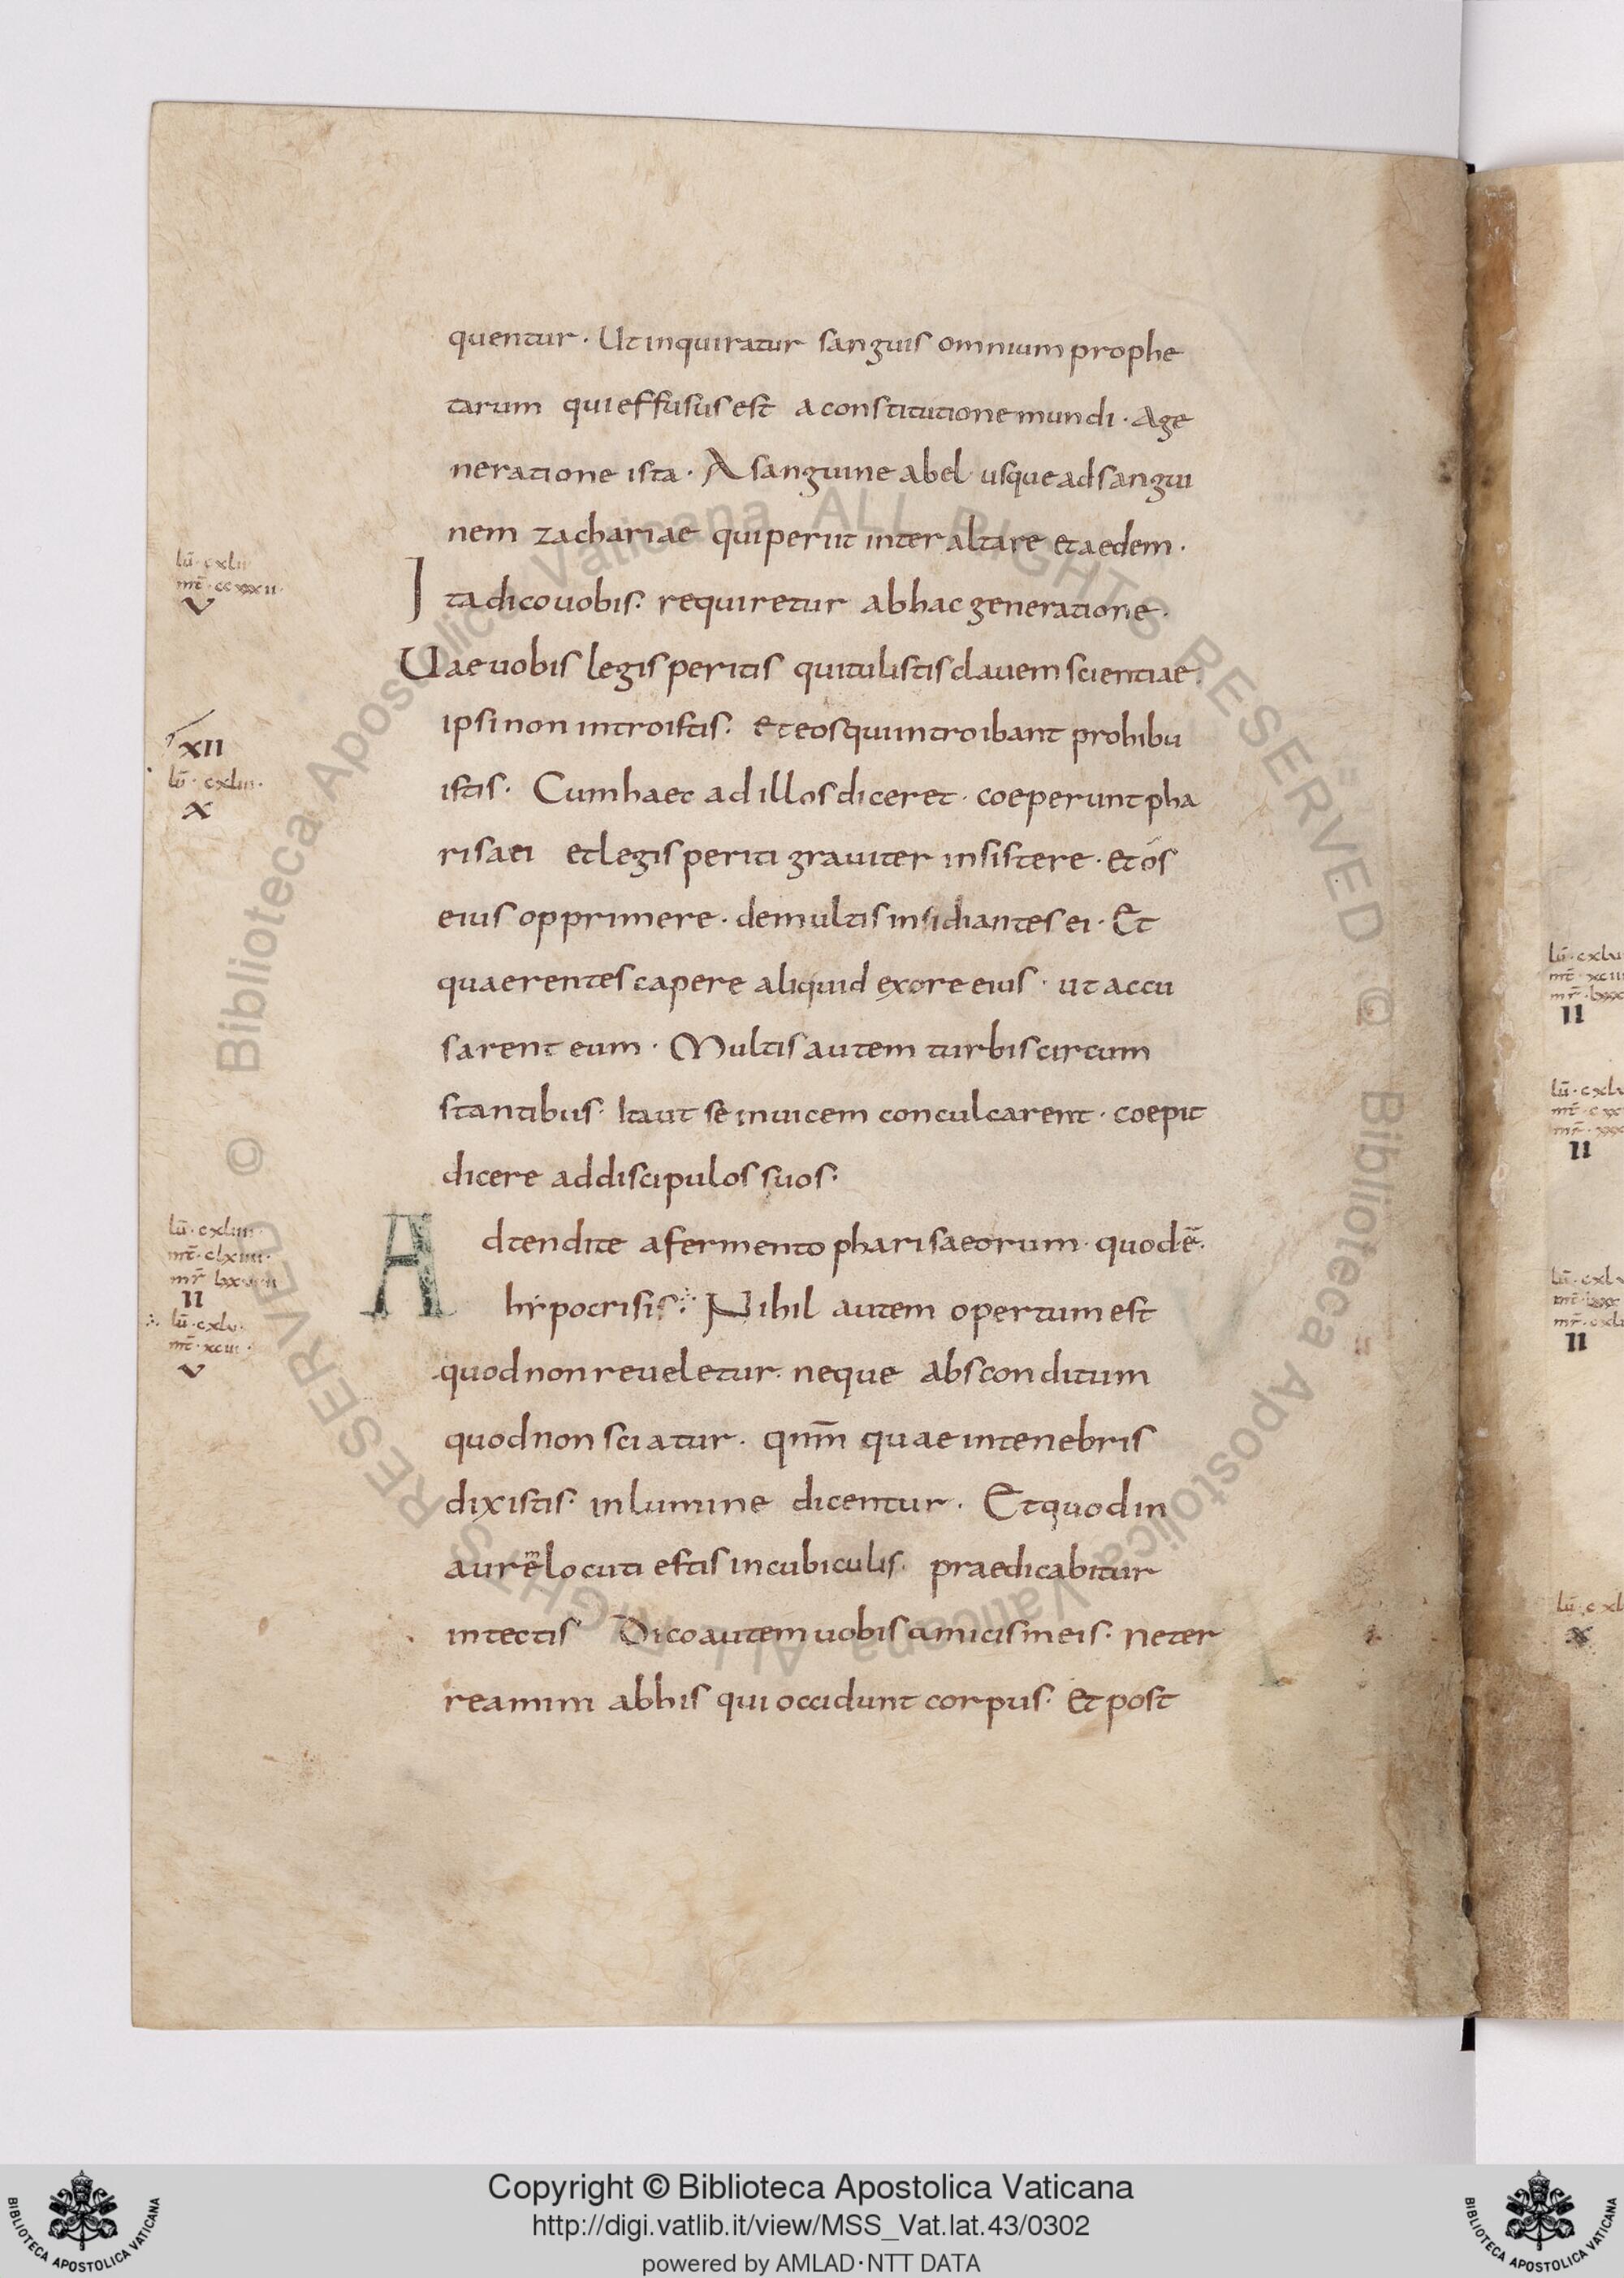 quentur · Ut inquiratur sanguis omnium prophe
tarum qui effusus est a constitutione mundi · A ge
neratione ista · A sanguine abel usque ad sangui
nem zachariae qui periit inter altare et aedem ·
lū · cxlii
mt̄ · ccxxxvii ·
V
Ita dico uobis · requiretur ab hac generatione ·
Uae uobis legis peritis qui tulistis clauem scientiae ·
ipsi non introistis · et eos qui introibant prohibu
XII
lū · cxliii ·
X
istis · Cum haec ad illos diceret · coeperunt pha
risaei et legis periti grauiter insistere · et os
eius opprimere · de multis insidiantes ei · Et
quaerentes capere aliquid ex ore eius · ut accu
sarent eum · Multis autem turbis circum
stantibus · Ita ut se inuicem conculcarent · coepit
dicere ad discipulos suos ·
lū · cxliiii ·
mt̄ · clxiiii ·
mr̄
II
lū · cxlv ·
mt̄ · xcii ·
V
Adtendite a fermento pharisaeorum · quod ē ·
hẏpocrisis · Nihil autem opertum est
quod non reueletur · neque absconditum
quod non sciatur · qnm̄ quae in tenebris
dixistis · in lumine dicentur · Et quod in
aurem locuti estis in cubiculis · praedicabitur
in tectis Dico autem uobis amicis meis · Ne ter
reamini ab his qui occidunt corpus · Et post
lū · cxlvi
II
II
II
© Biblioteca Apostolica Vaticana ALL RIGHTS RESERVED © Biblioteca Apostolica Vaticana ALL RIGHTS RESERVED
Copyright © Biblioteca Apostolica Vaticana
http://digi.vatlib.it/view/MSS_Vat.lat.43/0302
powered by AMLAD·NTT DATA
BIBLIOTECA APOSTOLICA VATICANA
BIBLIOTECA APOSTOLICA VATICANA